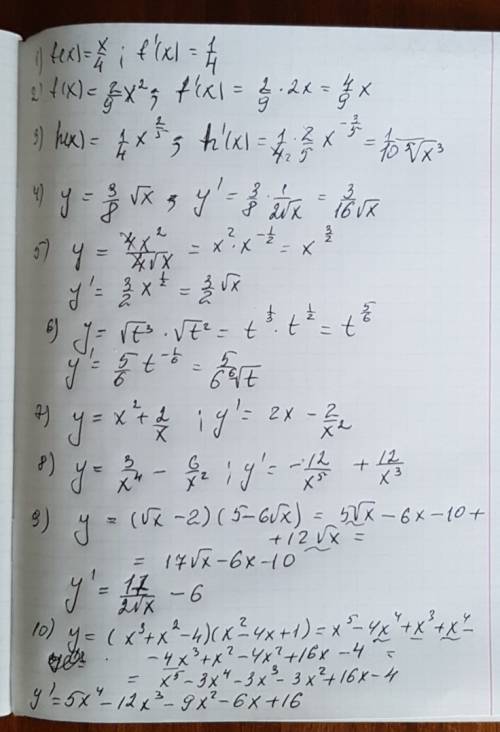 1) f(x) = x/4 ; f'(x) = 1/4
2) f(x) = 2/9 x² ; f'(x) = 2/9 · 2x = 4/9 x
3) h(x) = 1/4 x^(2/5) ; h'(x) = 1/4 · 2/5 x^(-3/5) = 1/(10 ⁵√x³)
4) y = 3/8 √x ; y' = 3/8 · 1/(2√x) = 3/(16√x)
5) y = 4x²/(4√x) = x² · x^(-1/2) = x^(3/2)
y' = 3/2 x^(1/2) = 3/2 √x
6) y = √t³ · √t² = t^(1/3) · t^(1/2) = t^(5/6)
y' = 5/6 t^(-1/6) = 5/(6 ⁶√t)
7) y = x² + 2/x ; y' = 2x - 2/x²
8) y = 3/x⁴ - 6/x² ; y' = -12/x⁵ + 12/x³
9) y = (√x - 2)(5 - 6√x) = 5√x - 6x - 10 +
+ 12√x =
= 17√x - 6x - 10
y' = 17/(2√x) - 6
10) y = (x³ + x² - 4)(x² - 4x + 1) = x⁵ - 4x⁴ + x³ + x⁴ -
- 4x³ + x² - 4x² + 16x - 4 =
= x⁵ - 3x⁴ - 3x³ - 3x² + 16x - 4
y' = 5x⁴ - 12x³ - 9x² - 6x + 16